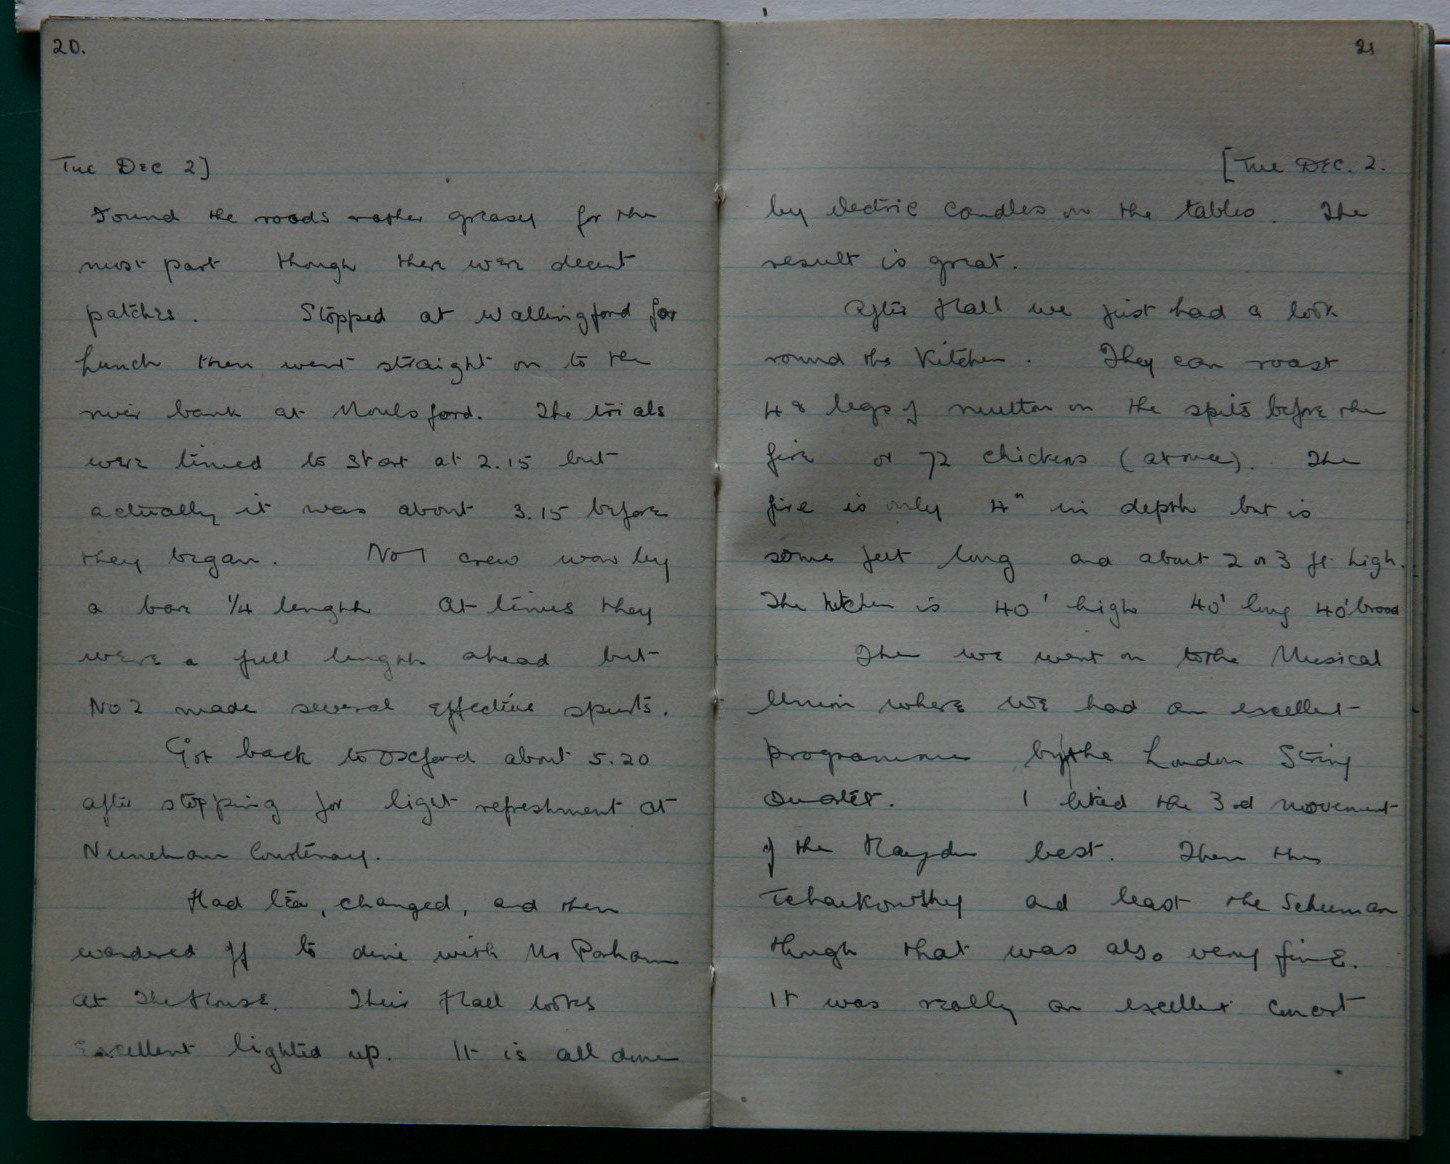 20.
Tue Dec 2]
Found the roads rather greasy for the
most part though there were decent
patches. Stopped at Wallingford for
lunch then went straight on to the
river bank at Moulsford. The trials
were timed to start at 2.15 but
actually it was about 3.15 before
they began. No 1 crew won by
a bare 1/4 length At times they
were a full length ahead but
No 2 made several effective spurts.
Got back to Oxford about 5.20
after stopping for light refreshment at
Nuneham Courtenay.
Had tea, changed, and then
wandered off to dine with Mr Parham
at The House. Their Hall looks
excellent lighted up. It is all done
21
[Tue Dec. 2.
by electric candles on the tables. The
result is great.
After Hall we just had a look
round the Kitchen. They can roast
48 legs of mutton on the spits before the
fire or 72 chickens (at once). The
fire is only 4" in depth but is
some feet long and about 2 or 3 ft high.
The kitchen is 40' high 40' long 40' broad
Then we went on to the Musical
Union where we had an excellent
programme by the London String
Quartet. I liked the 3rd movement
of the Haydn best. Then the
Tchaikowsky and least the Schuman
though that was also very fine.
It was really an excellent concert